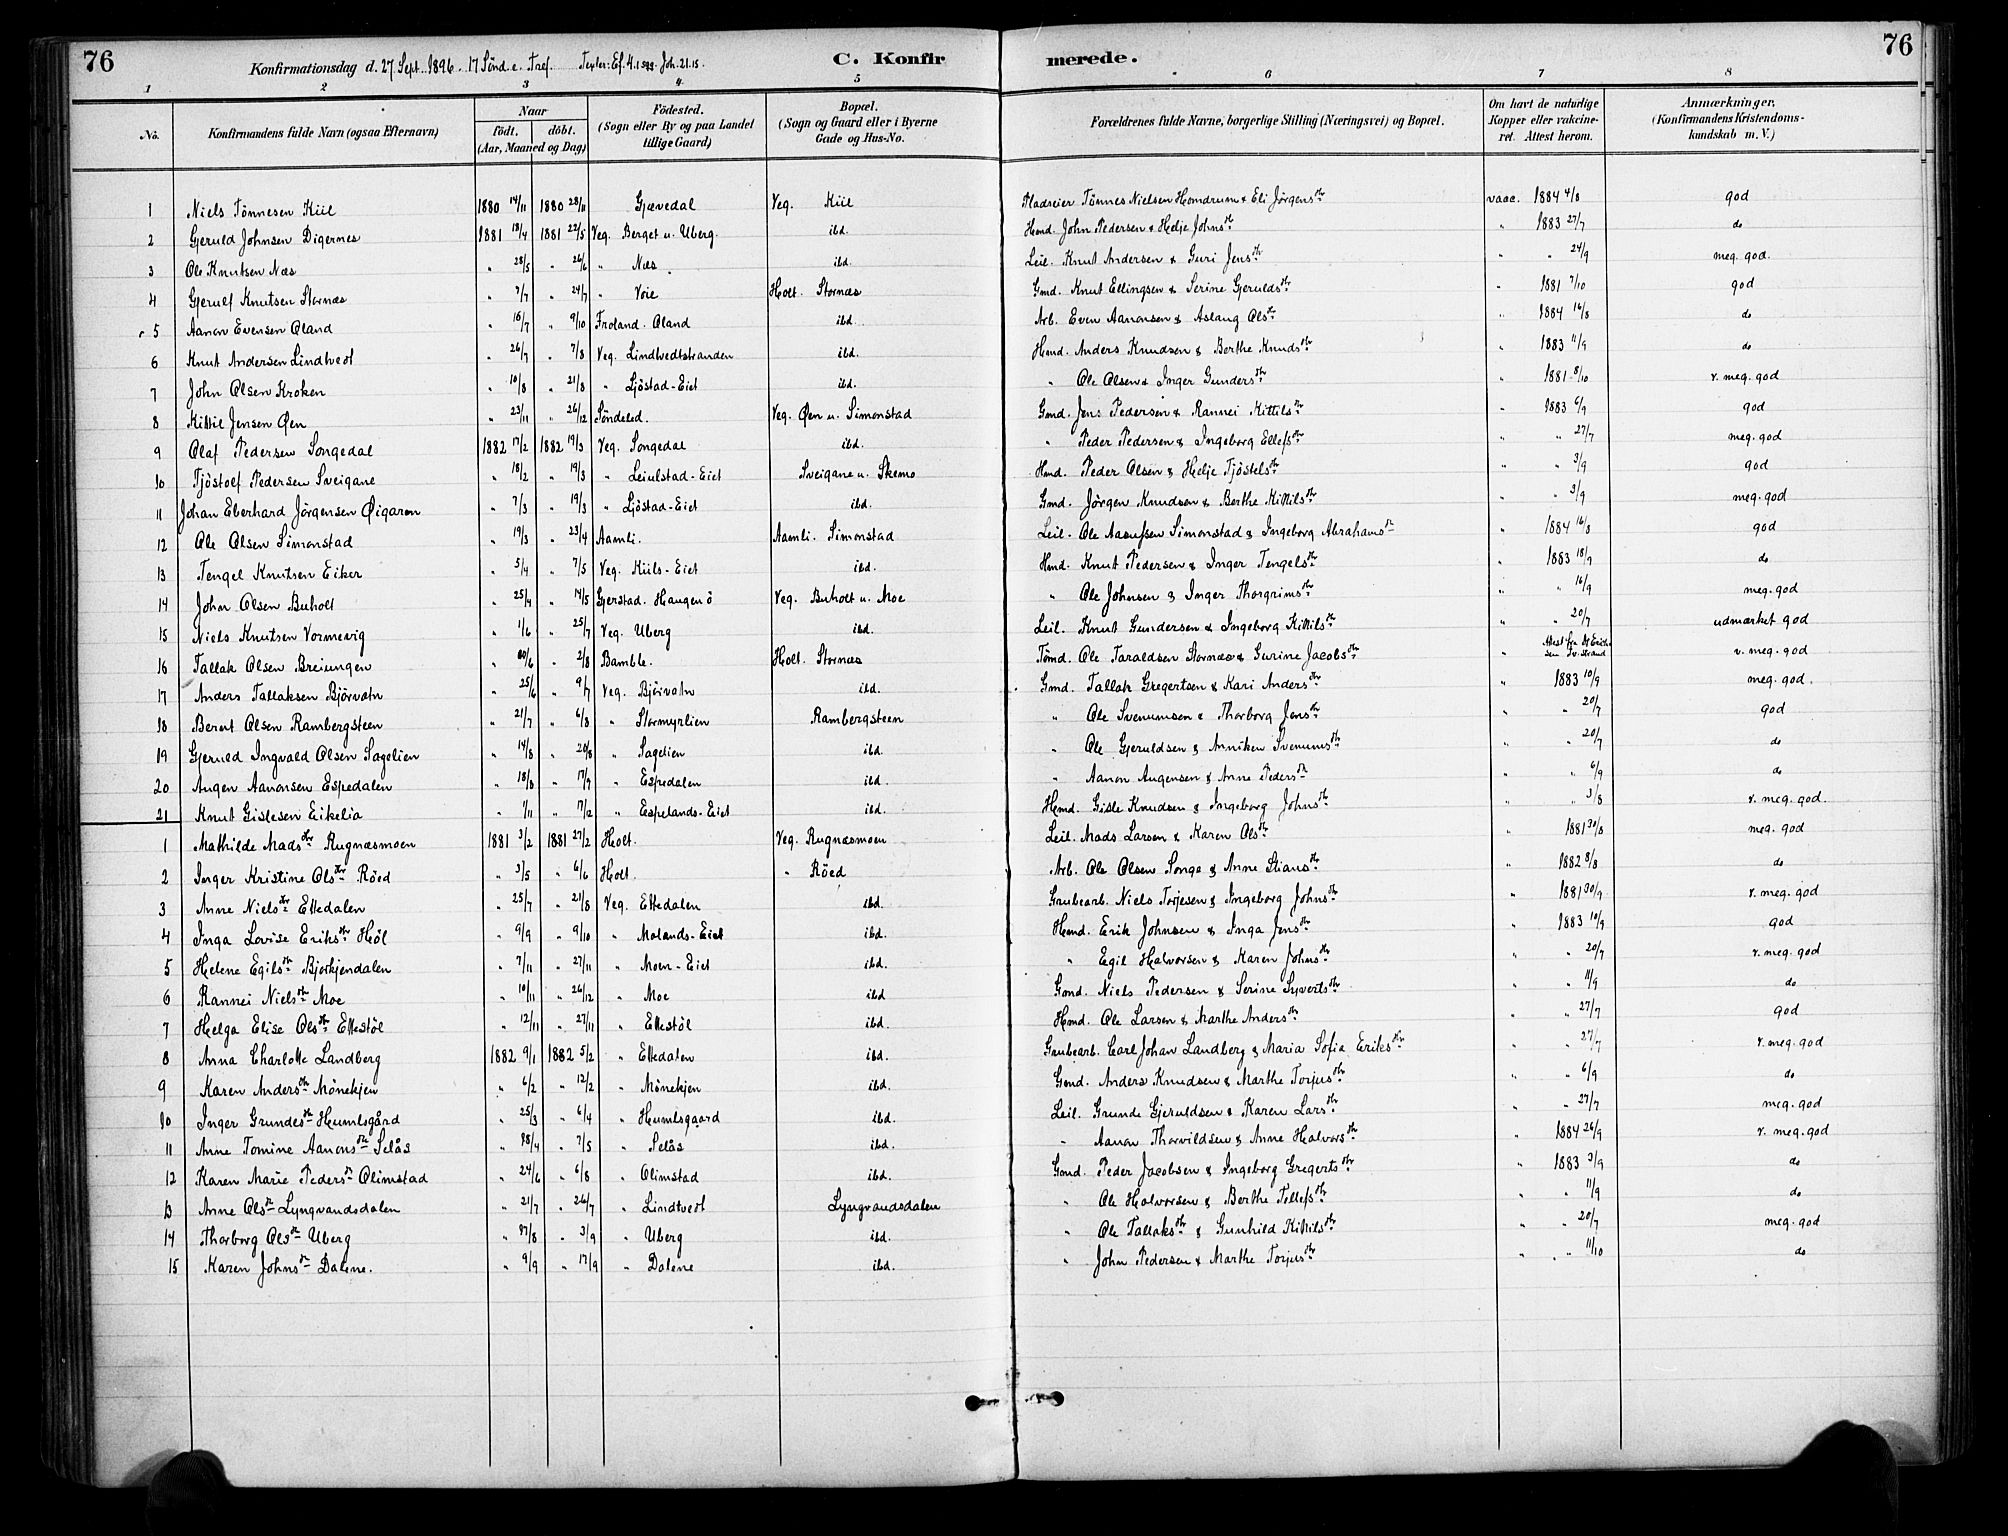 76
Konfirmationsdag d. 27 Sept. 1896. 17 Sönd. e. Tref. Texter: Ef. 4. 1 Joh. 21. 15.
C. Konfirmerede.
76
1 2 3 4 5 6 7 8
No. Konfirmandens fulde Navn (ogsaa Efternavn) Naar födt. döbt. (Aar, Maaned og Dag) Födested. (Sogn eller By og paa Landet tillige Gaard) Bopæl. (Sogn og Gaard eller i Byerne Gade og Hus-No. Forældrenes fulde Navne, borgerlige Stilling (Næringsvei) og Bopæl. Om havt de naturlige Kopper eller vakcineret. Attest herom. Anmærkninger, (Konfirmandens Kristendomskundskab m. V.)
1 Niels Tönnesen Kiil 1880 14/11 1880 28/11 Gjævedal Veg. Kiil Pladseier Tönnes Nielsen Homdrum & Eli Jörgensdtr vacc. 1884 4/8 god
2 Gjeruld Johnsen Digernes 1881 18/4 1881 22/5 Veg. Berget u. Uberg. ibd. Hmd. John Pedersen & Helje Johnsdtr " 1883 27/7 do
3 Ole Knutsen Næs " 28/5 " 26/6 " Næs ibd. Leil. Knut Andersen & Guri Jensdtr " " 24/9 meg. god.
4 Gjerulf Knutsen Stornæs " 7/7 " 24/7 " Voie Holt. Stornæs Gmd. Knut Ellingsen & Serine Gjeruldsdtr " 1881 7/10 god
5 Aanon Evensen Oland " 16/7 " 9/10 Froland. Oland ibd. Arb. Even Aanonsen & Aslaug Olsdtr " 1884 16/8 do
6 Knut Andersen Lindtvedt " 26/7 " 7/8 Veg. Lindtvedtstranden ibd. Hmd. Anders Knudsen & Berthe Knudsdtr " 1883 11/9 do
7 John Olsen Kroken " 10/8 " 21/8 " Ljöstad-Eiet ibd. " Ole Olsen & Inger Gundersdtr " 1881 8/10 v. meg. god
8 Kittil Jensen Øen " 23/11 " 26/12 Söndeled. Veg. Øen u. Simonstad Gmd. Jens Pedersen & Rannei Kittilsdtr " 1883 6/9 god
9 Olaf Pedersen Songedal 1882 17/2 1882 19/3 Veg. Songedal ibd. " Peder Pedersen & Ingeborg Ellefsdtr " " 27/7 meg. god
10 Tjöstolf Pedersen Sveigane " 18/2 " 19/3 " Leiulstad-Eiet Sveigane u. Skemo Hmd. Peder Olsen & Helje Tjöstelsdtr " " 3/9 god
11 Johan Eberhard Jörgensen Øigaren " 7/3 " 19/3 " Ljöstad-Eiet ibd. Gmd. Jörgen Knudsen & Berthe Kittilsdtr " " 3/9 meg. god
12 Ole Olsen Simonstad " 19/3 " 23/4 Aamli. Aamli. Simonstad Leil. Ole Aasulfsen Simonstad & Ingeborg Abrahamsdtr " 1884 16/8 god
13 Tengel Knutsen Eiker " 5/4 " 7/5 Veg. Kiils-Eiet ibd. Hmd. Knut Pedersen & Inger Tengelsdtr " 1883 18/9 do
14 John Olsen Buholt " 25/4 " 14/5 Gjerstad. Haugen ö Veg. Buholt u. Moe " Ole Johnsen & Inger Thorgrimsdtr " " 16/9 meg. god
15 Niels Knutsen Vormevig " 1/6 " 25/7 Veg. Uberg ibd. Leil. Knut Gundersen & Ingeborg Kittilsdtr " " 20/7 udmærket god
16 Tallak Olsen Breiungen " 20/6 " 2/8 Bamble. Holt. Stornæs Tömd. Ole Taraldsen Stornæs & Gurine Jacobsdtr " Attest fra v. meg. god
17 Anders Tallaksen Björvatn " 25/6 " 9/7 Veg. Björvatn ibd. Gmd. Tallak Gregertsen & Kari Andersdtr " 1883 10/9 meg. god.
18 Bernt Olsen Rambergsteen " 21/7 " 6/8 " Stormyrlien Rambergsteen " Ole Svenumsen & Thorborg Jensdtr " " 20/7 god
19 Gjeruld Ingvald Olsen Sagelien " 14/8 " 20/8 " Sagelien ibd. " Ole Gjeruldsen & Anniken Svenumsdtr " " 20/7 do
20 Augen Aanonsen Espedalen " 18/8 " 17/9 " Espedalen ibd. " Aanon Augensen & Anne Pedersdtr " " 6/9 do
21 Knut Gislesen Eikelia " 1/11 " 7/12 " Espelands-Eiet ibd. Hmd. Gisle Knudsen & Ingeborg Johnsdtr " " 3/8 v. meg. god.
1 Mathilde Madsdtr Rugnæsmoen 1881 3/2 1881 27/2 Holt. Veg. Rugnæsmoen Leil. Mads Larsen & Karen Olsdtr " 1881 30/8 meg. god
2 Inger Kristine Olsdtr Röed " 3/5 " 6/6 Holt. " Röed Arb. Ole Olsen Songe & Anne Stiansdtr " 1882 8/8 do
3 Anne Nielsdtr Ettedalen " 25/7 " 21/8 Veg. Ettedalen ibd. Grubearb. Niels Torjesen & Ingeborg Johnsdtr " 1881 30/9 v. meg. god
4 Inga Lovise Eriksdtr Höl " 9/9 " 9/10 " Molands-Eiet ibd. Hmd. Erik Johnsen & Inga Jensdtr " 1883 10/9 god
5 Helene Egilsdtr Bjorkjendalen " 7/11 " 27/11 " Moen-Eiet ibd. " Egil Halvorsen & Karen Johnsdtr " " 20/7 v. meg. god
6 Rannei Nielsdtr Moe " 10/11 " 26/12 " Moe ibd Gmd. Niels Pedersen & Serine Syvertsdtr " " 11/9 do
7 Helga Elise Olsdtr Ettestöl " 12/11 " 27/11 " Ettestöl ibd. Hmd. Ole Larsen & Marthe Andersdtr " " 27/7 god
8 Anna Charlotte Landberg 1882 9/1 1882 5/2 " Ettedalen ibd. Grubearb. Carl Johan Landberg & Maria Sofia Eriksdtr " " 27/7 v. meg. god
9 Karen Andersdtr Mönekjen " 6/2 " 12/2 " Mönekjen ibd. Gmd. Anders Knudsen & Marthe Torjusdtr " " 6/9 do
10 Inger Grundesdtr Humlsgård " 25/3 " 6/4 " Humlsgaard ibd. Leil. Grunde Gjeruldsen & Karen Larsdtr " " 27/7 meg. god
11 Anne Tomine Aanonsdtr Selås " 28/4 " 7/5 " Selås ibd. " Aanon Thorvildsen & Anne Halvorsdtr " 1884 26/9 v. meg. god
12 Karen Marie Pedersdtr Olimstad " 24/6 " 6/8 " Olimstad ibd. Gmd. Peder Jacobsen & Ingeborg Gregertsdtr " 1883 3/9 do
13 Anne Olsdtr Lyngvandsdalen " 21/7 " 26/7 " Lindtvedt Lyngvandsdalen " Ole Halvorsen & Berthe Tellefsdtr " " 11/9 do
14 Thorborg Olsdtr Uberg " 27/8 " 3/9 " Uberg ibd. " Ole Tallaksdtr & Gunhild Kittilsdtr " " 20/7 meg. god
15 Karen Johnsdtr Dalene. " 9/9 " 17/9 " Dalene ibd. " John Pedersen & Marthe Torjusdtr " " 11/10 do